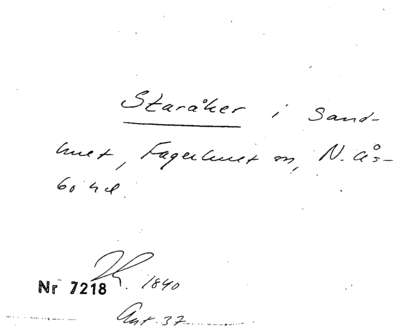 Staråker i Sand-
hult, Fagerhult sn, N. Ås-
bo hd.
Nr 7218 1840
Ant. 37